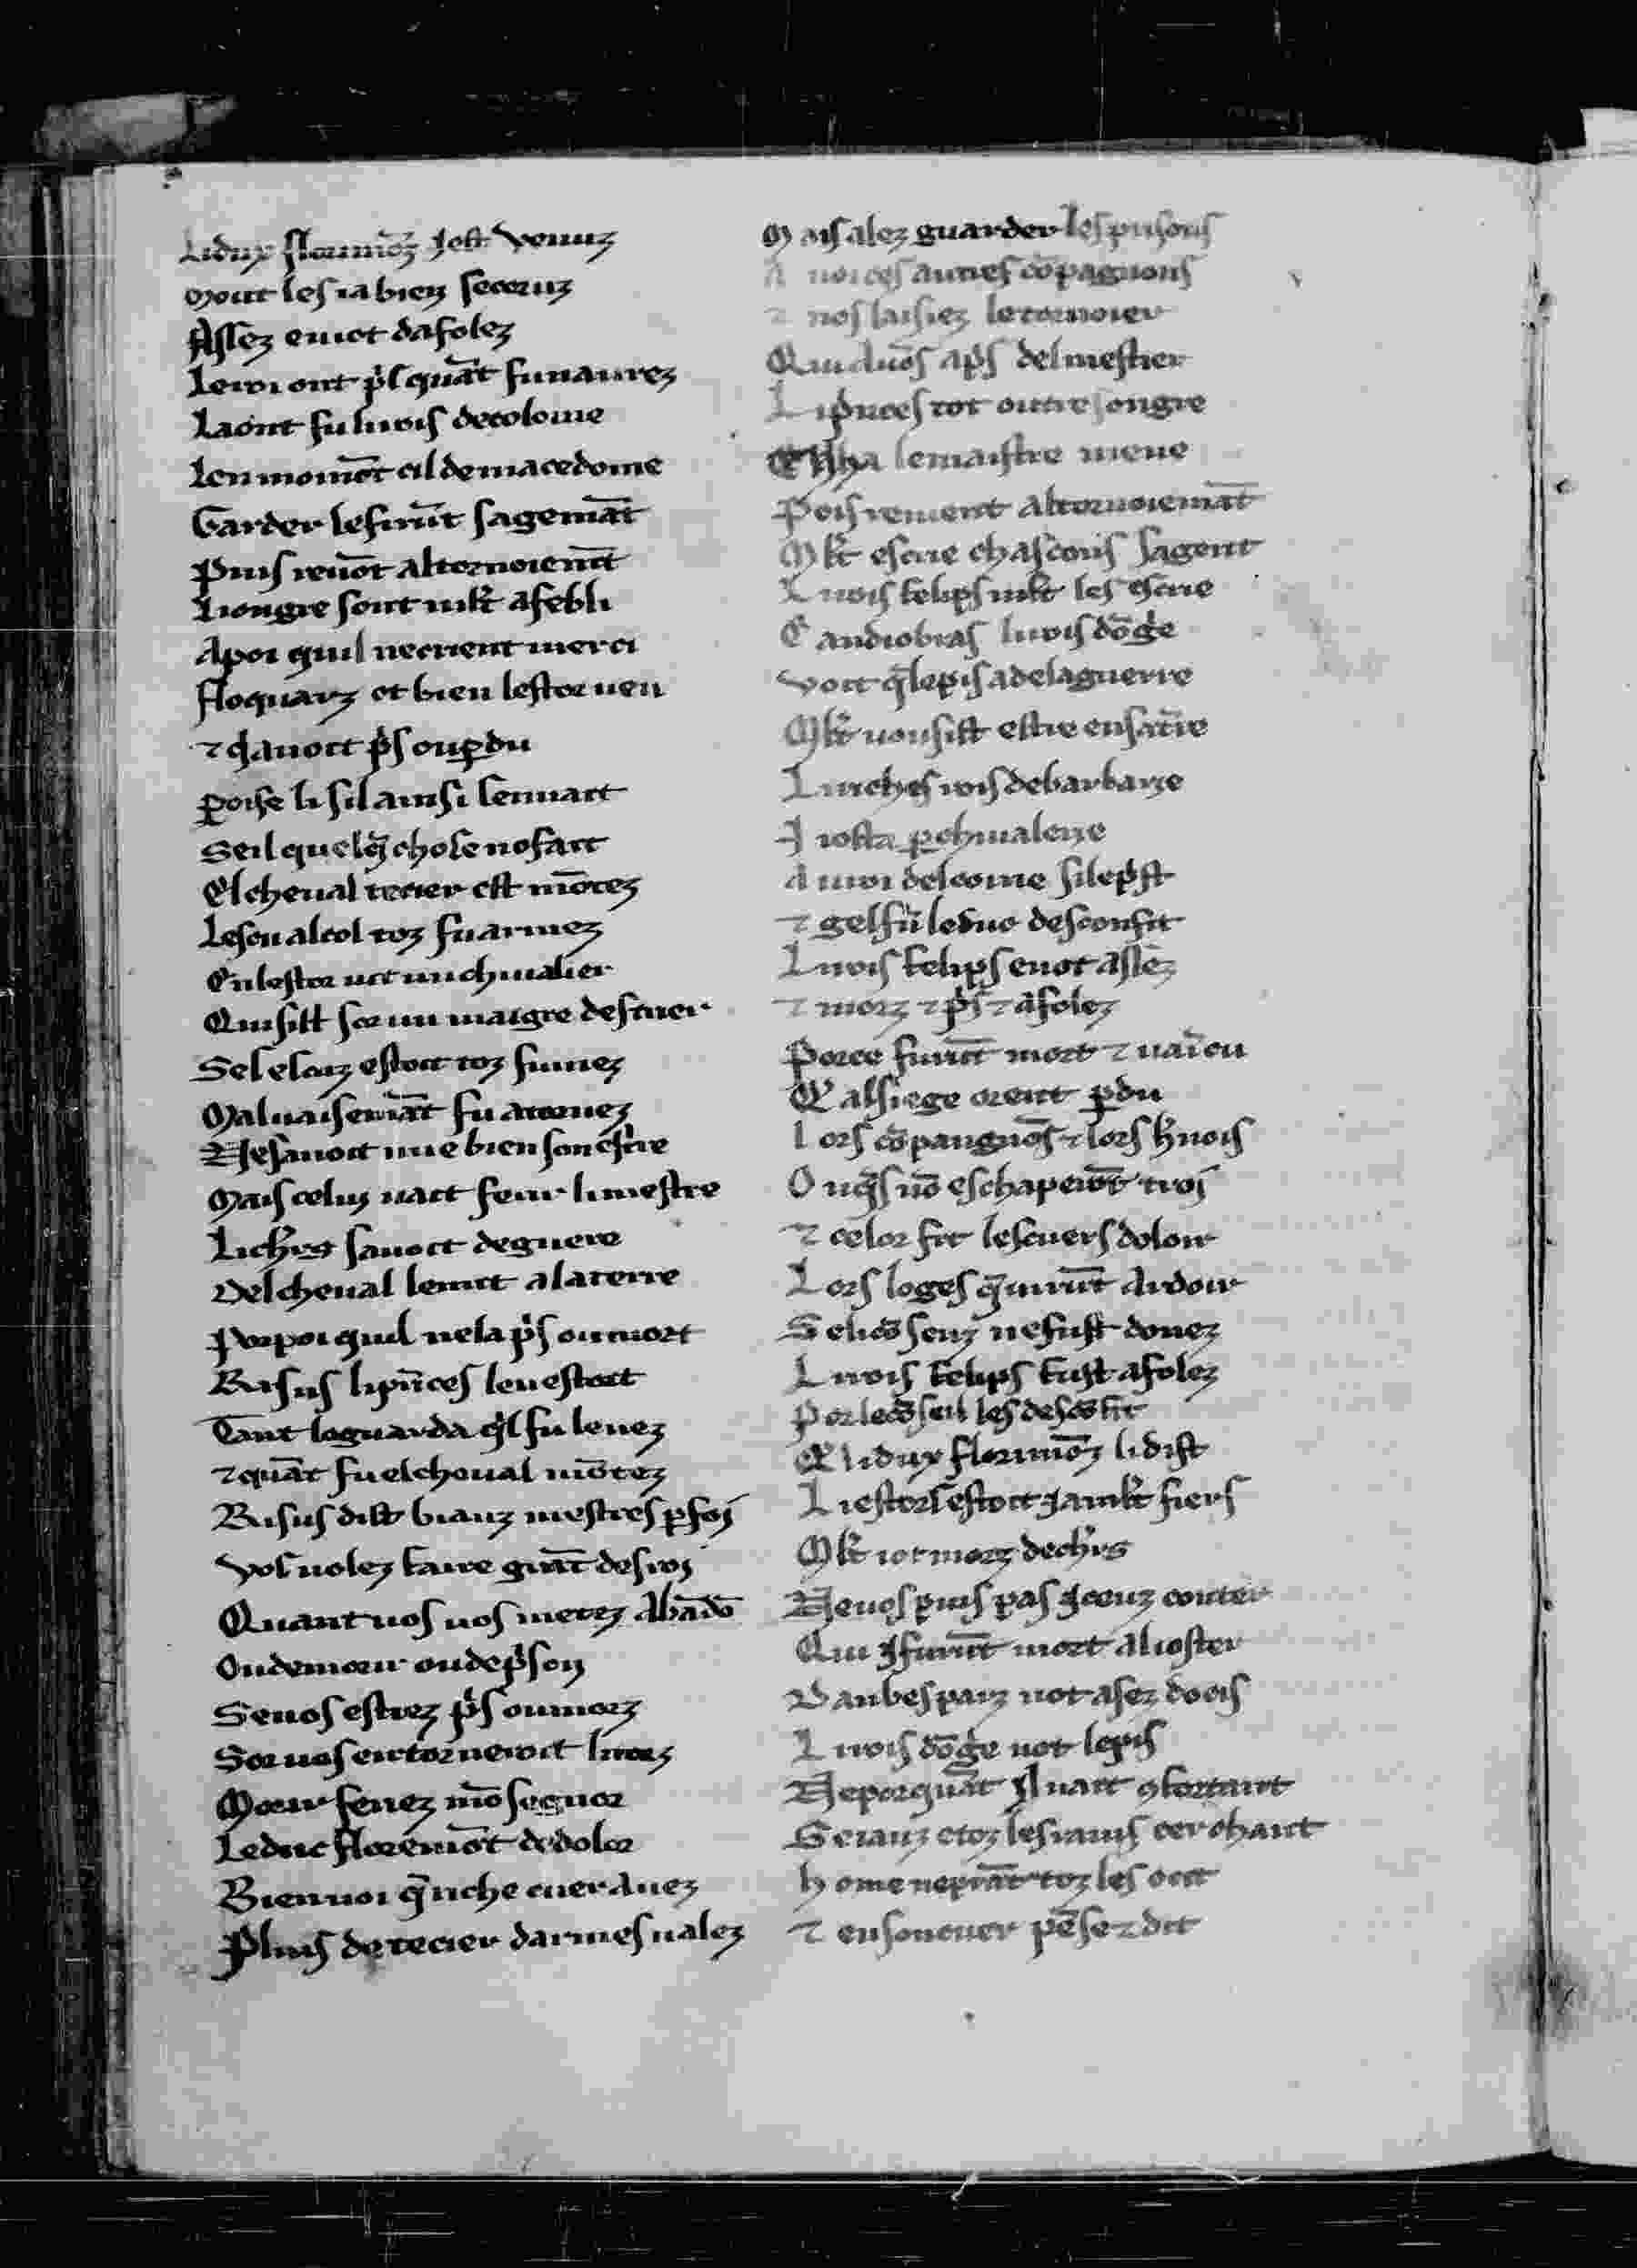 Li dux florimōz i est venuz
Mout les ia bien secoruz
Assez en iot dafolez
Le roi ont p̍s quāt fu naurez
La ont fu li rois de coloine
Len moinēt cil de macedoine
Garder le firūt sagemāt
Puis reuōt al tornoiemāt
Li ongre sont mlt̄ afebli
A poi quil ne crient merci
Floquarz ot bien lestor ueu
⁊ q̍ auoit p̍s ou ꝑdu
Poise li sil ainsi sen uait
Se il quelq̄ chose no fait
El cheual tecier est mōtez
Lescu al col toz fu armez
En lestor uit un cheualier
Qui sist sor un maigre destrier
Sel elmz estoit toz
Maluaisemāt fu atornez
Ne sauoit mie bien son estre
Mais celui uait ferir li mestre
Lich̄rs sauoit de guere
Del cheual le mit a la terre
Por poi quil ne la p̍s ou mort
Risus li p̍nces leuestoit
Tant lo guarda q̍l fu leuez
⁊ quāt fu el cheual mōtez
Risus dist biauz mestres ꝑ foi
Vos uolez faire grāt desroi
Quant uos uos metez abādō
Ou de morir ou de p̍son
Se uos estiez p̍s ou morz
Sor nos en torneroit li torz
Morir ferez mō segnor
Le duc floremōt de dolor
Bien uoi q̄ riche cuer auez
Pluis de tecier darmes ualez
Mais alez guarder les prisons
A uoi ces autres cōpagnons
⁊ nos laisiez le tornoier
Qui auōs ap̍s del mestier
Li p̍nces tot outre songre
El lemaistre mene
Pois reuient al tornoiemāt
Mlt̄ escrie chascons sa gent
Li rois felips mlt̄ les escrie
Candiobras li rois dōg̍e
Voit q̄ le pis a de la guerre
Mlt̄ uousist estre en sa t̄re
Li riches rois de barbarie
I iosta ꝑ cheualerie
A un roi del coine si le p̍st
⁊ gelfū le duc desconfit
Li rois felips en ot assez
⁊ morz ⁊ p̍s ⁊ afolez
Por ce furūt mort ⁊ uaīcu
Q̄ al siege orent ꝑdu
Lors cōpangnōs ⁊ lors h̍nois
Onq̄s nō eschaperōt troi
⁊ celor fit lescuers doloir
Lors loges q̄ uirūt ardoir
Se li cōsenz ne fust donez
Li rois felips fust afolez
Por le cōseil les descōfit
Q̄ li dux florimōz li dist
Li estors estoit ia mlt̄ fiers
Mlt̄ iot morz de ch̄rs
Ne uos puis pas iceuz conter
Qui i furūt mort al ioster
Daubes parz not asez docis
Li rois dōg̍e not le pis
Neporquāt il uait ꝯfortant
Se iauz e toz les rans cerchant
Home ne prāt toz les ocit
⁊ en son cuer pēse ⁊ dit